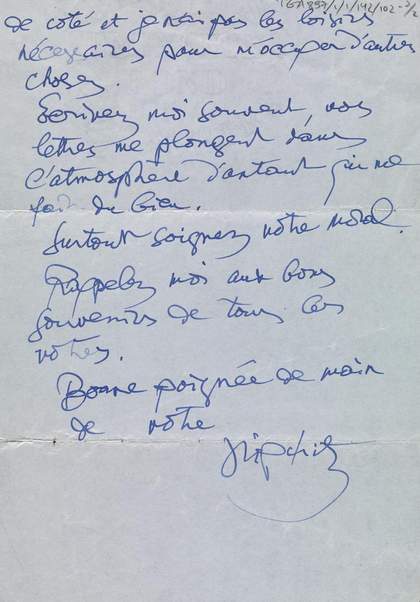 TGA 897/1/1/142/102-3/2
de côté et je n'ai pas les loisirs
nécessaires pour m'occuper d'autres
choses.
Écrivez moi souvent, vos
lettres me plongent dans
l'atmosphère d'antant qui me
fait du bien.
Surtout soignez votre moral.
Rappelez moi aux bons
souvenirs de tous les
vôtres.
Bonne poignée de main
de votre
Lipchitz